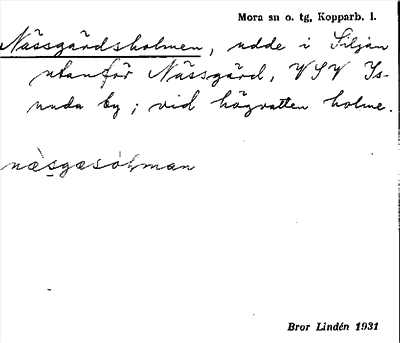 Mora sn o. tg, Kopparb. l.
Nässgärdsholmen, udde i Siljan
utanför Nässgärd, VSV Is-
unda by; vid högvatten holme.
næsgæsóḷman
Bror Lindén 1931